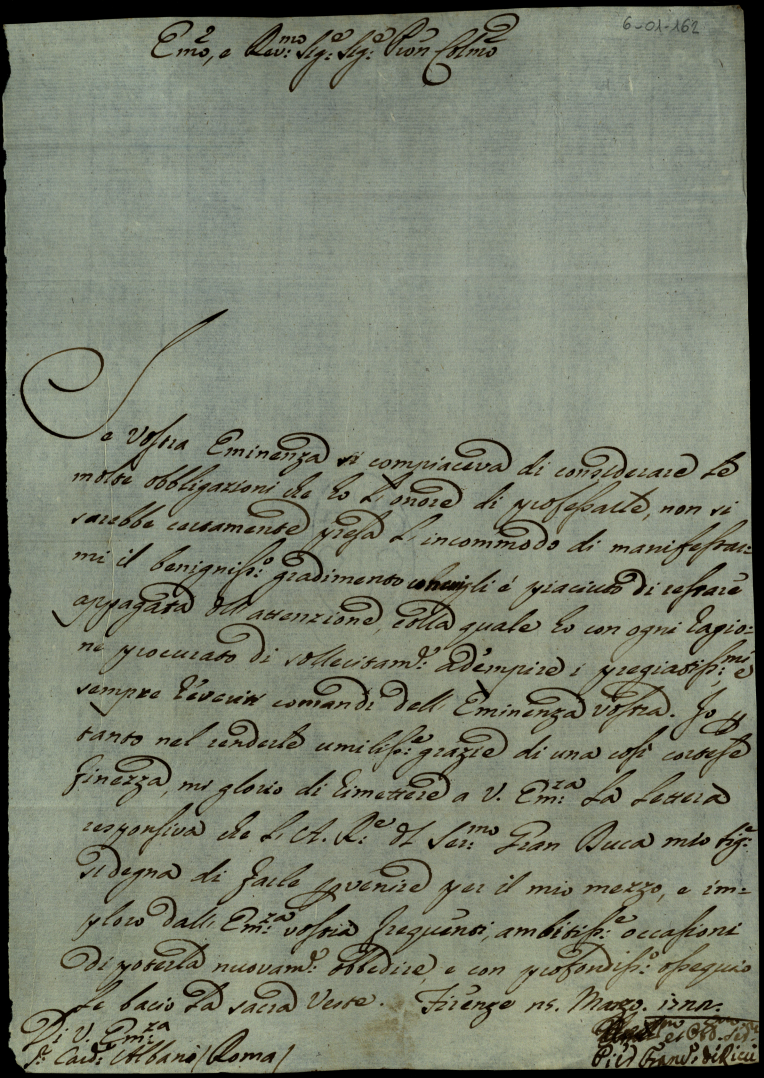 6-01-162
Emo, e Rev:mo Sig:e Sig:e Pron Colmo
Se Vostra Eminenza si compiaceva di considerare le
molte obbligazioni che ho l'onore di professarle, non si
sarebbe certamente presa l'incommodo di manifestar=
mi il benigniss:o gradimento gli è piaciuto di restare
appagata dell'attenzione, colla quale ho con ogni ragio=
ne procurato di sollecitam:e adempire i pregiatiss:mi e
sempre reveriti comandi dell'Eminenza Vostra. Io p
tanto nel renderle umiliss:e grazie di una così cortese
finezza, mi glorio di rimettere a V. Em:za la lettera
responsiva che L'A. R:e del Ser:mo Gran Duca mio Sig:e
si degna di farle pvenire per il mio mezzo, e im=
ploro dall'Em:za Vostra frequenti, ambitiss:e occasioni
di poterla nuovam:e obbedire, e con profondiss:o ossequio
le bacio la sacra Veste. Firenze Marzo.
Di V. Em:za
S:r Card: Albano (Roma)
Pier Fran:o de Ricci